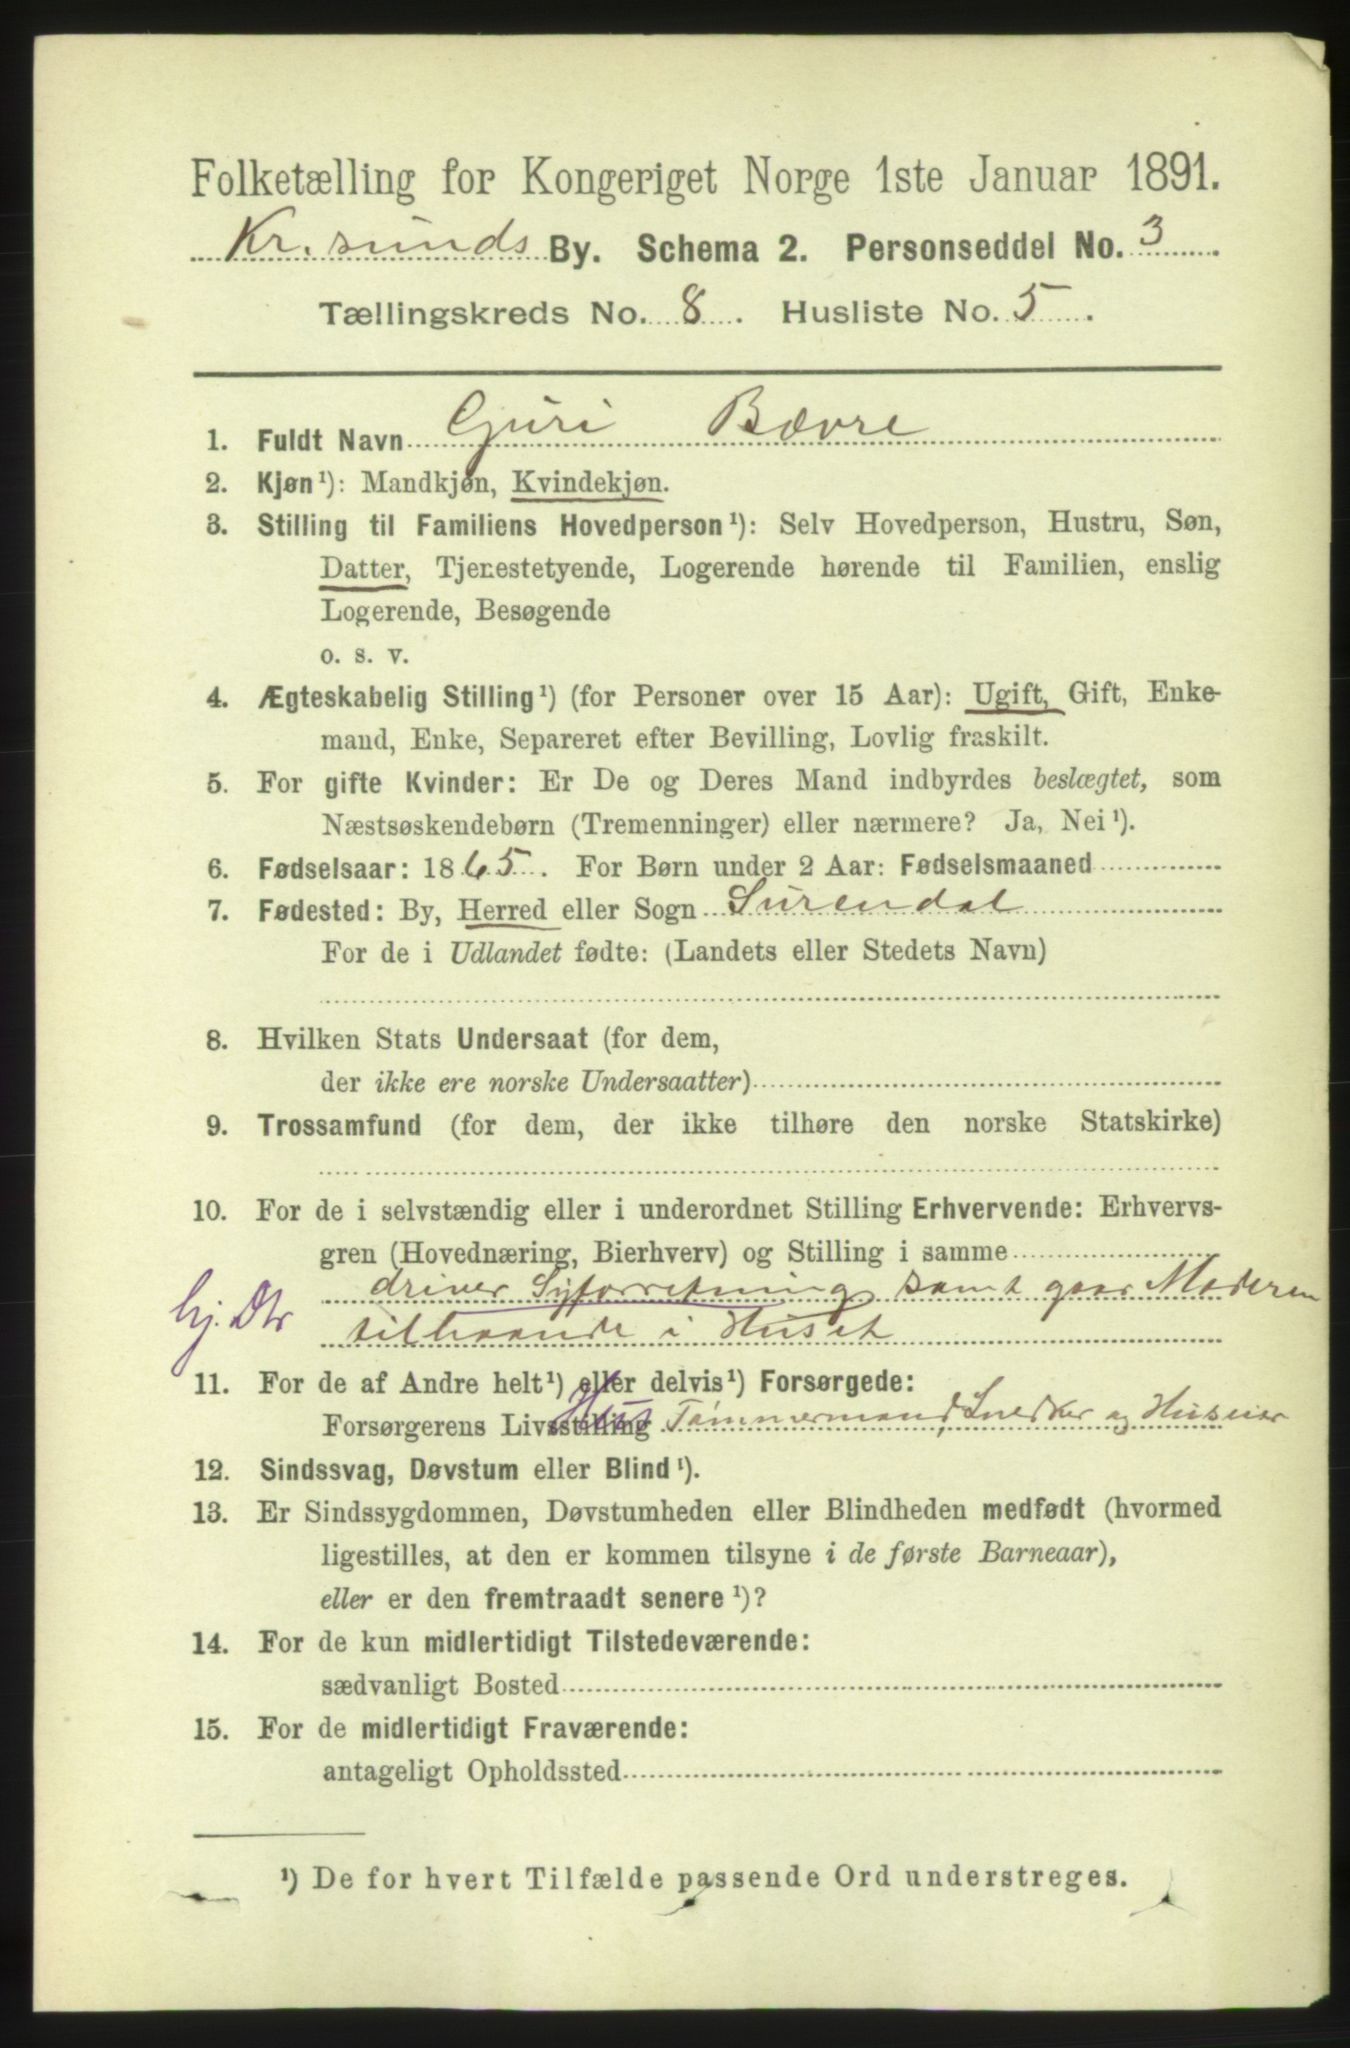 Folketælling for Kongeriget Norge 1ste Januar 1891.
Kr.sunds By. Schema 2. Personseddel No. 3
Tællingskreds No. 8. Husliste No. 5.
1. Fuldt Navn Guri Bævre
2. Kjøn¹): Mandkjøn, Kvindekjøn.
3. Stilling til Familiens Hovedperson¹): Selv Hovedperson, Hustru, Søn,
Datter, Tjenestetyende, Logerende hørende til Familien, enslig
Logerende, Besøgende
o. s. v.
4. Ægteskabelig Stilling¹) (for Personer over 15 Aar): Ugift, Gift, Enke-
mand, Enke, Separeret efter Bevilling, Lovlig fraskilt.
5. For gifte Kvinder: Er De og Deres Mand indbyrdes beslægtet, som
Næstsøskendebørn (Tremenninger) eller nærmere? Ja, Nei¹).
6. Fødselsaar: 1865. For Børn under 2 Aar: Fødselsmaaned
7. Fødested: By, Herred eller Sogn Surendal
For de i Udlandet fødte: (Landets eller Stedets Navn)
8. Hvilken Stats Undersaat (for dem,
der ikke ere norske Undersaatter)
9. Trossamfund (for dem, der ikke tilhøre den norske Statskirke)
10. For de i selvstændig eller i underordnet Stilling Erhvervende: Erhvervs-
gren (Hovednæring, Bierhverv) og Stilling i samme
driver Syforretning samt gaar Moderen
hj. Dtr tilhaande i Huset
11. For de af Andre helt¹) eller delvis¹) Forsørgede:
Forsørgerens Livsstilling Tømmermand, Snedker og Huseier
12. Sindssvag, Døvstum eller Blind¹).
13. Er Sindssygdommen, Døvstumheden eller Blindheden medfødt (hvormed
ligestilles, at den er kommen tilsyne i de første Barneaar),
eller er den fremtraadt senere¹)?
14. For de kun midlertidigt Tilstedeværende:
sædvanligt Bosted
15. For de midlertidigt Fraværende:
antageligt Opholdssted
¹) De for hvert Tilfælde passende Ord understreges.